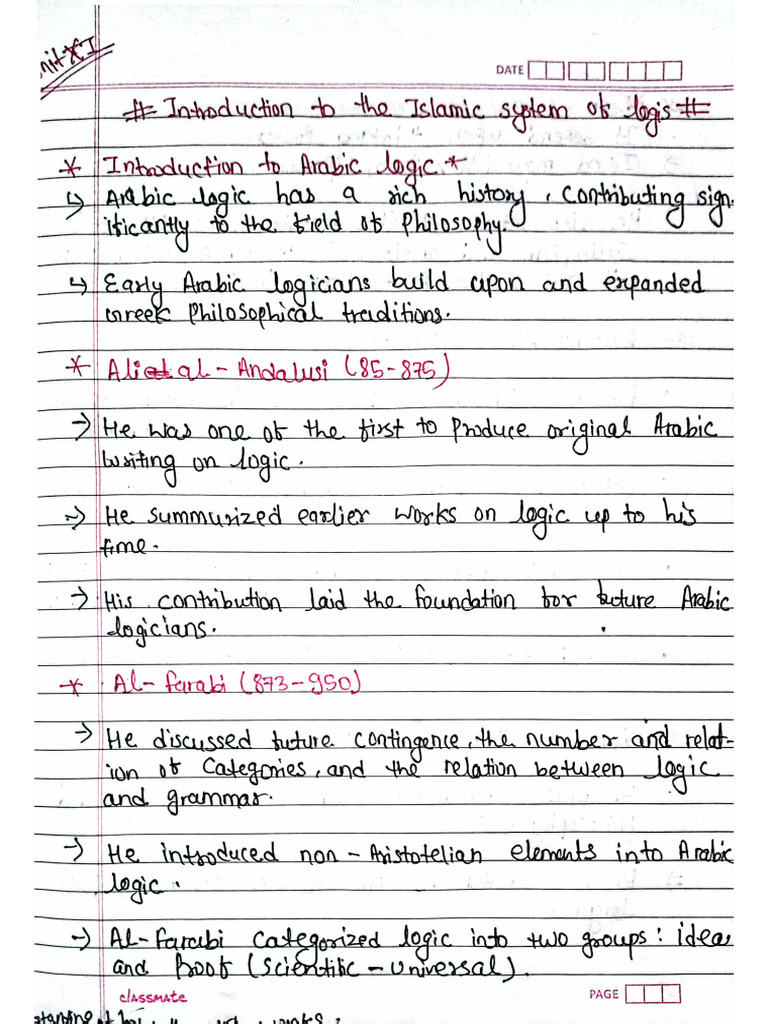 nit XI
DATE
# Introduction to the Islamic system of logis #
* Introduction to Arabic logic *
↳ Arabic logic has a rich history, contributing sign-
ificantly to the field of Philosophy.
↳ Early Arabic logicians build upon and expanded
Greek Philosophical traditions.
* Ali al-Andalusi (85-875)
→ He was one of the first to Produce original Arabic
writing on logic.
→ He summurized earlier works on logic up to his
time.
→ His contribution laid the foundation for future Arabic
logicians.
* Al-farabi (873-950)
→ He discussed future contingence, the number and relat-
ion of categories, and the relation between logic
and grammar.
→ He introduced non-Aristotelian elements into Arabic
logic.
→ Al-farabi categorized logic into two groups: idea
and Proof (scientific-universal).
classmate
PAGE